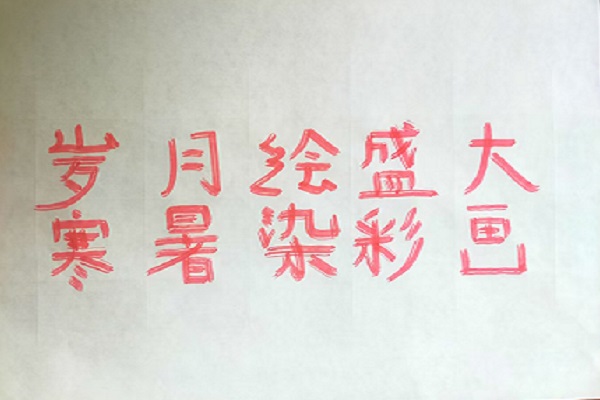 岁月绘盛大
寒暑染彩画